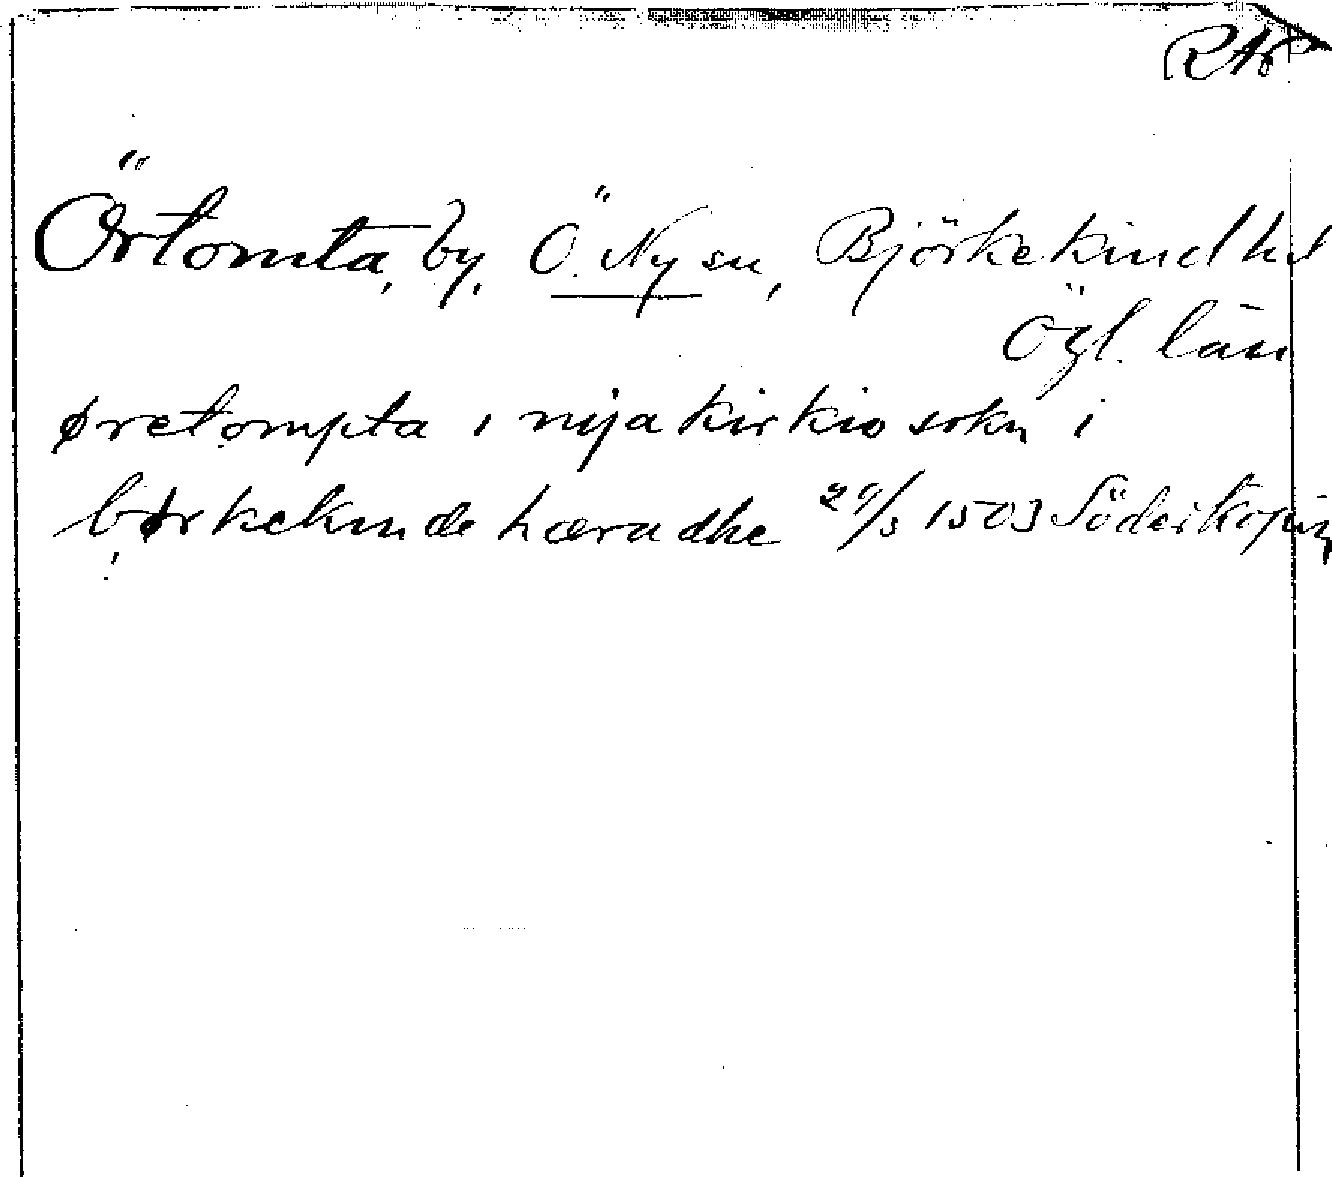 RAP
Örtomta, by, Ö. Ny sn, Björkekind hd
Ögl. län
øretompta i nyja kirkio sokn i
børkekinde hæradhe 29/3 1503 Söderköping